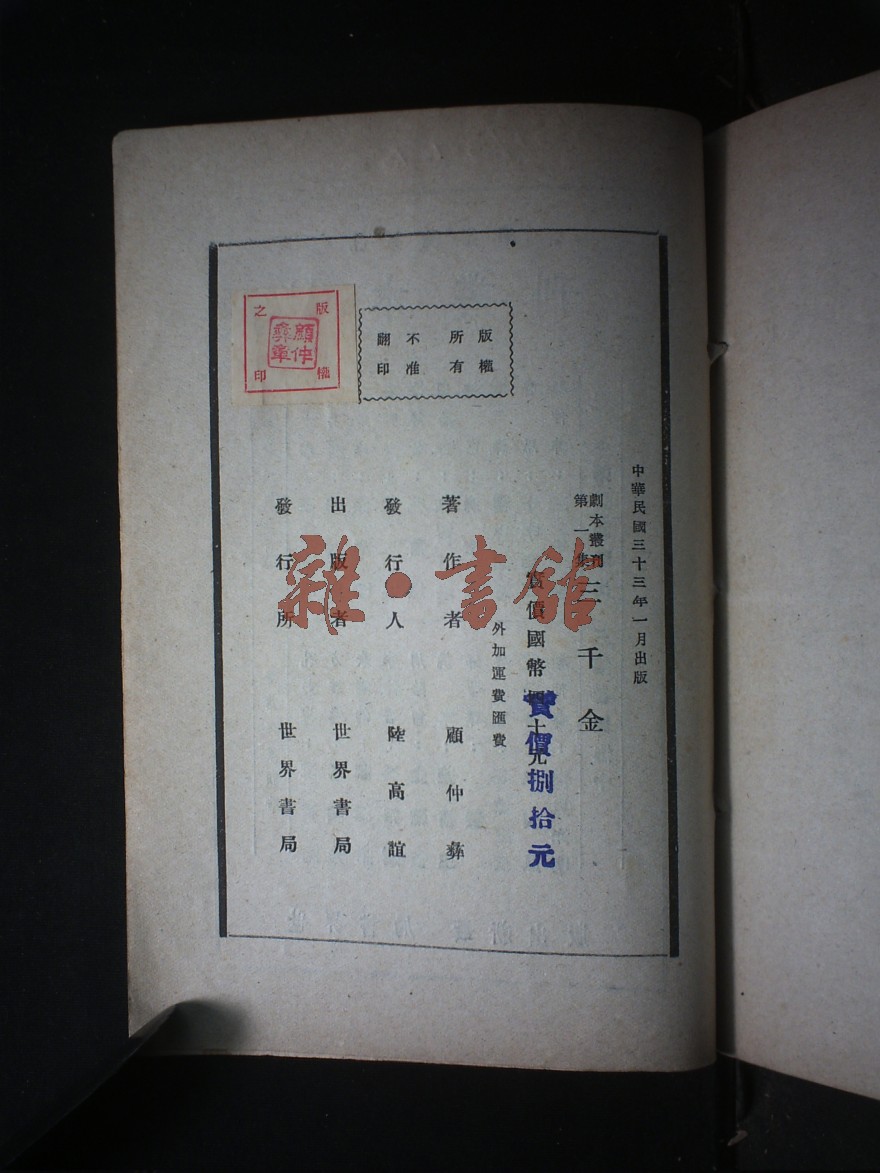 中華民國三十三年一月出版
劇本叢刊
第一集
三千金
實價國幣
十元
實價捌拾元
外加運費匯費
著作者 顧仲彝
發行人 陸高誼
出版者 世界書局
發行所 世界書局
版權所有
不准翻印
版權之印
顧仲彝章
雜·書館